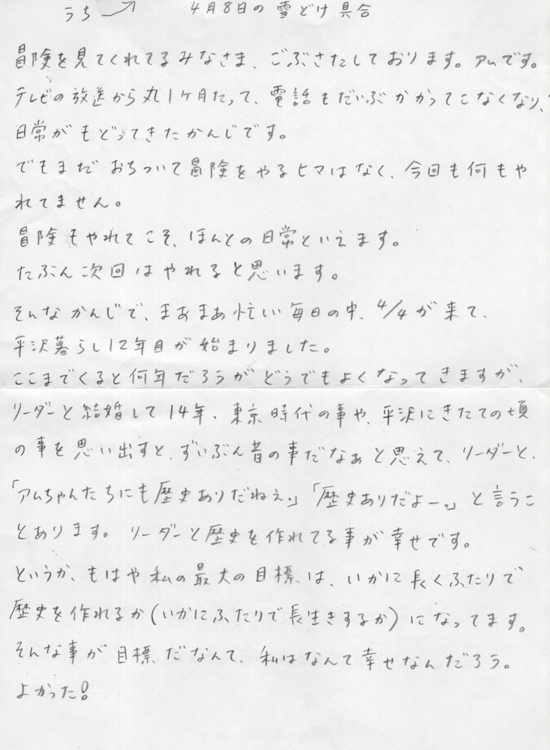 うち 4月8日の雪どけ具合
冒険を見てくれてるみなさま、ごぶさたしております。アムです。
テレビの放送から丸1ヶ月たって、電話もだいぶかかってこなくなり、
日常がもどってきたかんじです。
でもまだおちついて冒険をやるヒマはなく、今回も何もや
れてません。
冒険もやれてこそ、ほんとの日常といえます。
たぶん次回はやれると思います。
そんなかんじで、まあまあ忙しい毎日の中、4/4が来て、
平沢暮らし12年目が始まりました。
ここまでくると何年だろうがどうでもよくなってきますが、
リーダーと結婚して14年、東京時代の事や、平沢にきたての頃
の事を思い出すと、ずいぶん昔の事だなあと思えて、リーダーと、
「アムちゃんたちにも歴史ありだねぇ。」「歴史ありだよー。」と言うこ
とあります。リーダーと歴史を作れてる事が幸せです。
というか、もはや私の最大の目標は、いかに長くふたりで
歴史を作れるか(いかにふたりで長生きするか)になってます。
そんな事が目標だなんて、私はなんて幸せなんだろう。
よかった!